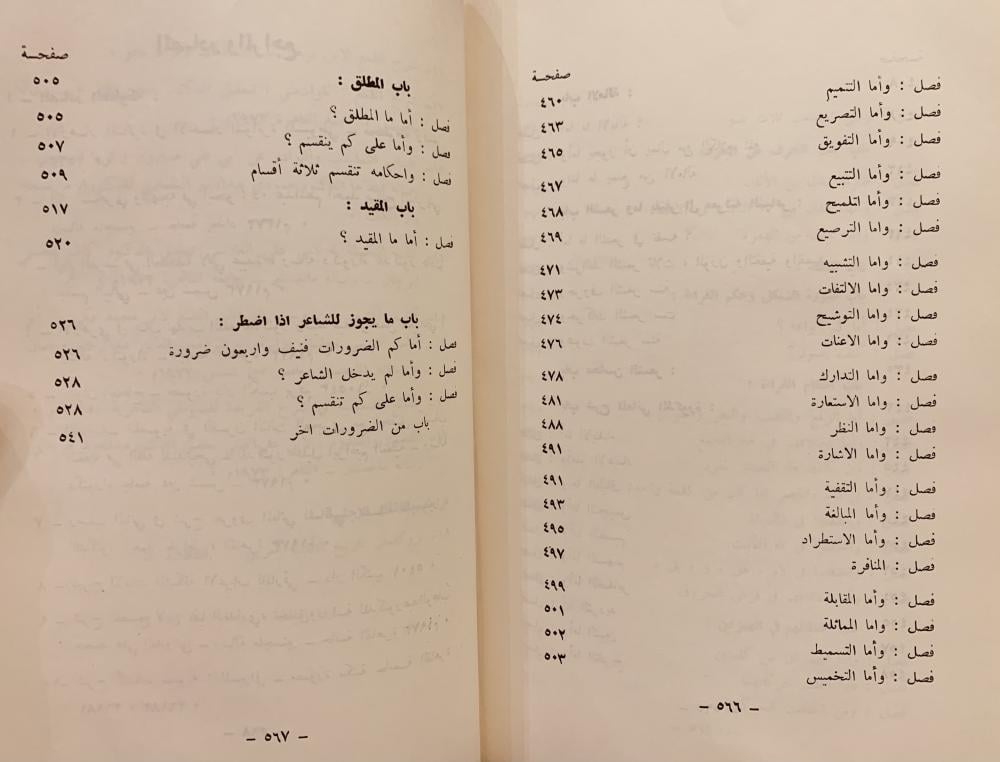 صفحة
فصل : وأما التتميم ٤٦٠
فصل : وأما التصريع ٤٦٣
فصل : وأما التفويق ٤٦٥
فصل : وأما التتبيع ٤٦٧
فصل : وأما اتلميح ٤٦٨
فصل : واما الترصيع ٤٦٩
فصل : واما التشبيه ٤٧١
فصل : واما الالتفات ٤٧٣
فصل : واما التوشيح ٤٧٤
فصل : واما الاعنات ٤٧٦
فصل : واما التدارك ٤٧٨
فصل : واما الاستعارة ٤٨١
فصل : واما النظر ٤٨٨
فصل : واما الاشارة ٤٩١
فصل : وأما التقفية ٤٩١
فصل : وأما المبالغة ٤٩٣
فصل : وأما الاستطراد ٤٩٥
فصل : المنافرة ٤٩٧
فصل : وأما المقابلة ٤٩٩
فصل : واما المماثلة ٥٠١
فصل : وأما التسميط ٥٠٢
فصل : وأما التخميس ٥٠٣
– ٥٦٦ –
صفحة
باب المطلق : ٥٠٥
فصل : أما ما المطلق ؟ ٥٠٥
فصل : وأما على كم ينقسم ؟ ٥٠٧
فصل : واحكامه تنقسم ثلاثة أقسام ٥٠٩
باب المقيد : ٥١٧
فصل : أما ما المقيد ؟ ٥٢٠
باب ما يجوز للشاعر اذا اضطر : ٥٢٦
فصل : أما كم الضرورات فنيف واربعون ضرورة ٥٢٦
فصل : وأما لم يدخل الشاعر ؟ ٥٢٨
فصل : وأما على كم تنقسم ؟ ٥٢٨
باب من الضرورات اخر ٥٤١
– ٥٦٧ –